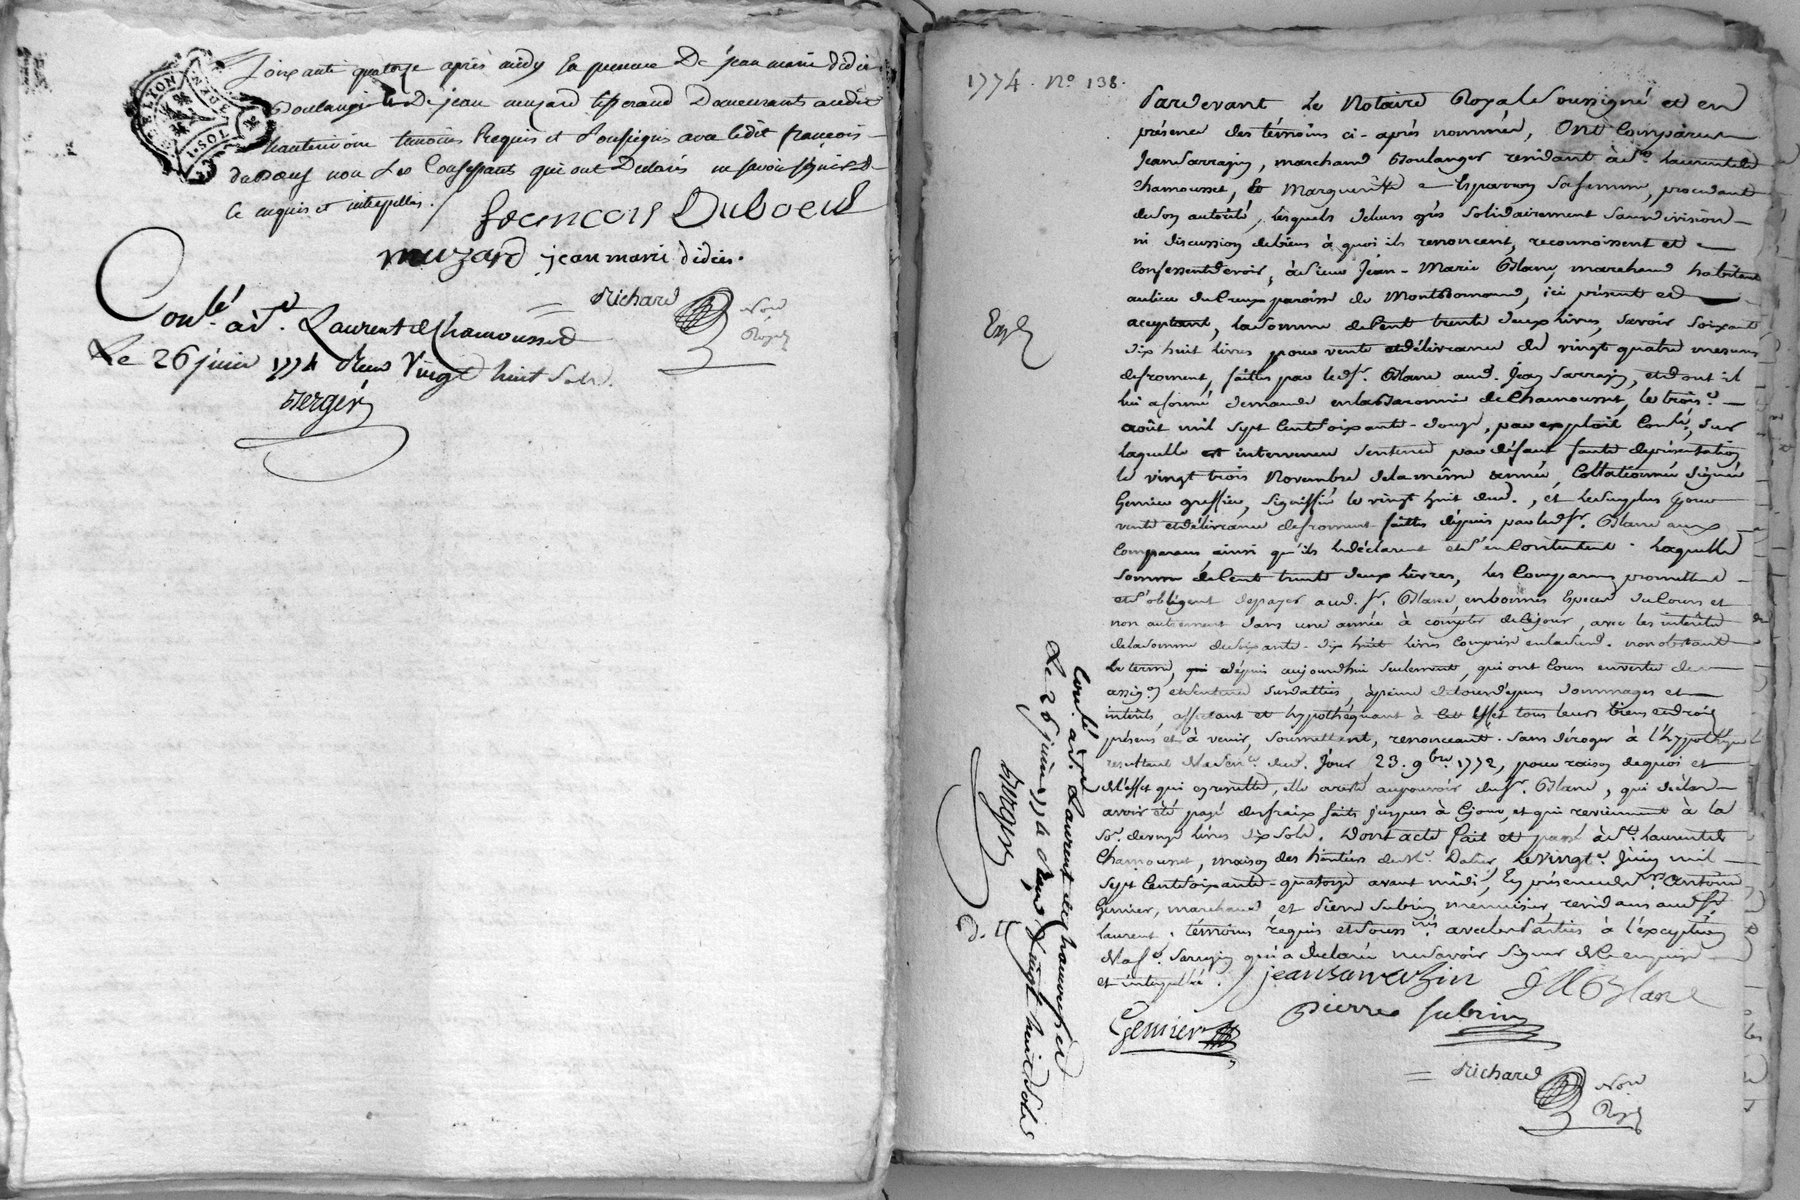 GEN. LYON
TOS. 1
Soixante quatorze après midy En presence De jean marie didier
Boulanger & De jean muzard tisserand Demeurants audit
hauterivoire temoins Requis et Soussignés avec ledit françois
duboeuf non Les Confessants qui ont Declarés ne savoir signer De
Ce enquis et interpellés./.
francois Duboeuf
muzard jean marie didier.
Richard Not Royal
Conlé à St. Laurent de Chamousset
Le 26 juin 1774 Reçu Vingt huit Sols.
Berger
1774. No. 138.
Pardevant Le Notaire Royal Soussigné et en
présence des témoins ci-après nommés, Ont Comparu
Jean Sarrazin, marchand Boulanger residant à St. laurent de
Chamousset, & Marguerite Esparron Sa femme, procedant
de son autorité, lesquels de leurs grés solidairement sans division
ni discussion de biens à quoi ils renoncent, reconnoissent et
Confessent devoir, à Sieur Jean-Marie Blanc, marchand habitant
au lieu du Creux paroisse de Montromand, ici présent et
acceptant, la somme de Cent trente deux livres, savoir Soixante
dix huit livres pour vente et délivrance de vingt quatre mesures
de froment, faites par led. Sr. Blanc aud. Jean Sarrazin, et dont il
lui a formé demande en la Baronnie de Chamousset, le trois
août mil sept Cent Soixante-douze, par exploit Conlé, Sur
laquelle est intervenue Sentence par défaut faute de présentation
le vingt trois Novembre de la même année, Collationnée Signée
Gemier greffier, Signiffié le vingt huit dud., et le Surplus pour
vente et délivrance de froment faittes dépuis par led. Sr. Blanc aux
Comparans ainsi qu'ils le déclarent et S'en Contentent. laquelle
Somme de Cent trente deux livres, les Comparans promettent
et S'obligent de payer aud. Sr. Blanc, en bonnes Especes du Cours et
non autrement dans une année à compter de Ce jour, avec les intérêts
de la Somme de Soixante-dix huit livres Comprise en lad. Send. nonobstant
Le terme, qui dépuis aujourdhui Seulement, qui ont Cours en vertu des
assig.on et Sentence Surdattées, à peine de tous dépens dommages et
intérêts, affectant et hypothéquant à Cet effet tous leurs biens et droits
présens et à venir, Soumettent, renonceant. Sans déroger à l'hypothèque
resultant de la Sen.ce dud. Jour 23. 9bre. 1772, pour raison de quoi et
de l'effet qui en resulte, elle reste au pouvoir dud. Sr. Blanc, qui déclare
avoir été payé des fraix faits jusques à Ce jour, et qui reviennent à la
Se. de onze livres dix Sols. Dont acte fait et passé à St. laurent de
Chamousset, maison des héritiers de Me. Dalier, Le vingt. Juin mil
Sept Cent Soixante-quatorze avant midi, En présence de Sr. Antoine
Gemier, marchand et Pierre Subrin menuisier residans aud. St.
laurent, témoins requis et Soussignés avec lesd. Parties à l'exception
de la fe. Sarrazin qui a déclaré ne savoir Signer de Ce enquise
et interpellée.
jean Sarrazin JM Blanc
Pierre Subrin
Gemier
Richard Not Royal
Conlé à St. Laurent de Chamousset
Le 26 juin 1774 Reçu Vingt huit Sols
Berger